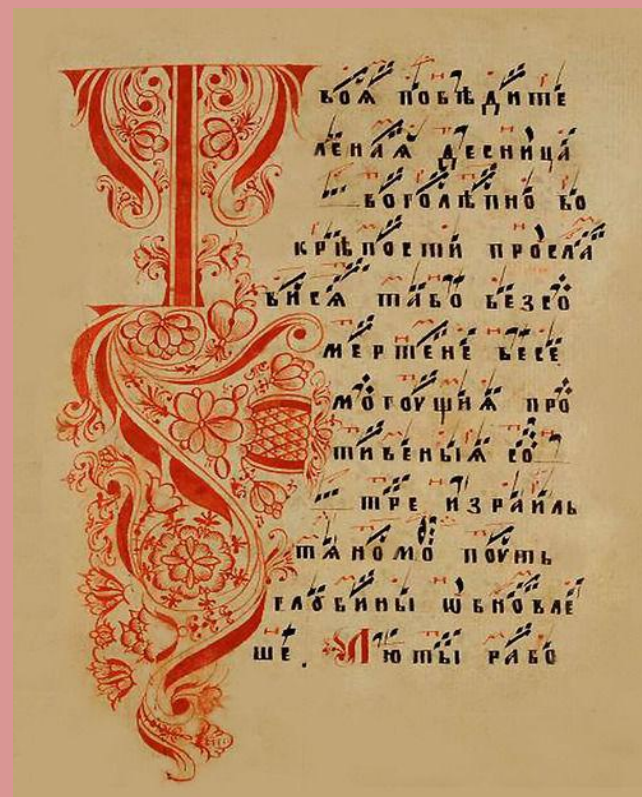 Твоѧ побѣдите
льнаѧ десница
боголѣпно во
крѣпости просла
висѧ та бо безсо
мертене весе
могоущиѧ про
тивеныѧ со
тре израиль
тѧномо поуть
глоубины ѡбновле
ше. Люты рабо